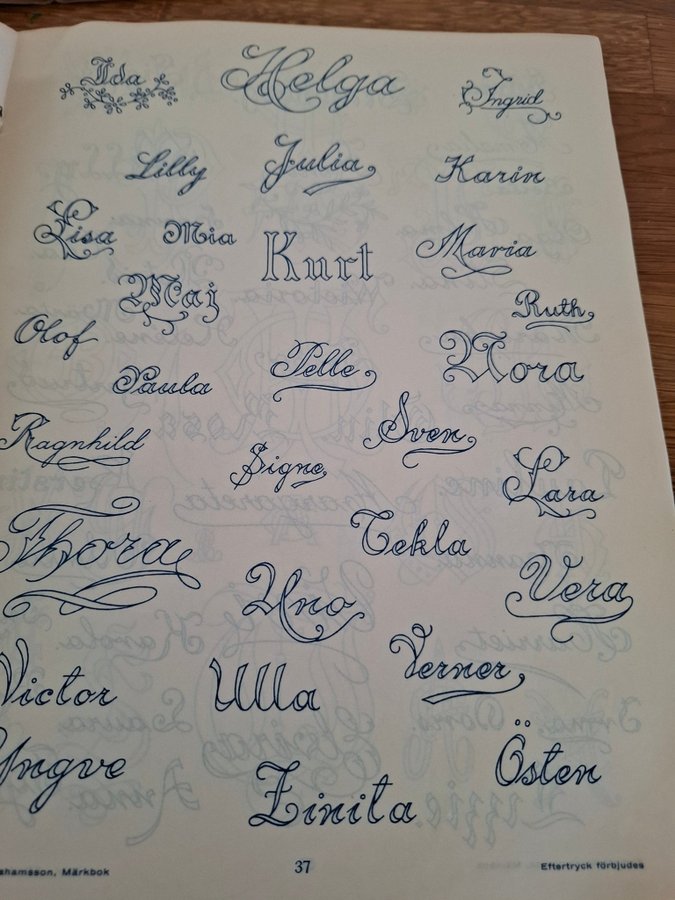 Ida Helga Ingrid
Lilly Julia Karin
Lisa Mia Kurt Maria
Maj Ruth
Olof Paula Pelle Nora
Ragnhild Signe Sven Lara
Thora Tekla
Uno Vera
Victor Ulla Verner
Yngve Zinita Östen
ahamsson, Märkbok 37 Eftertryck förbjudes